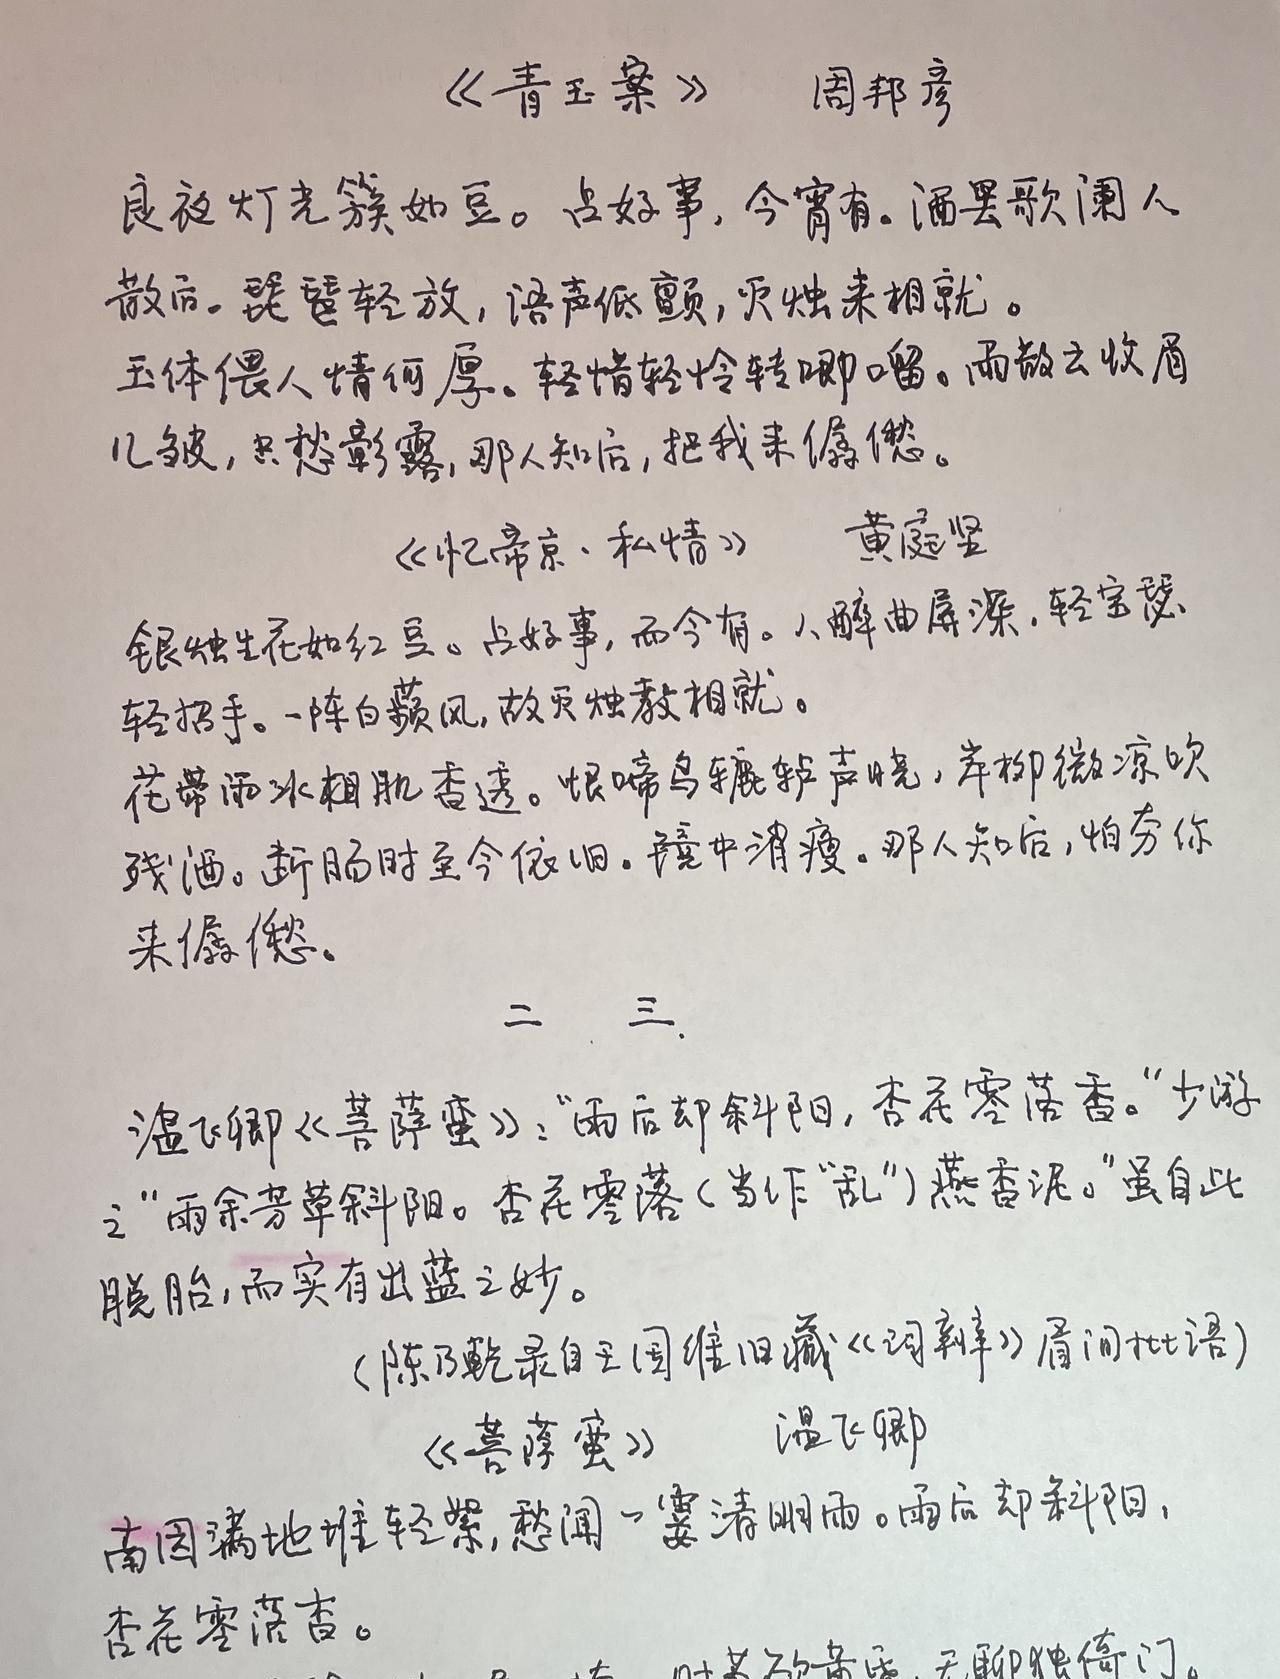 《青玉案》 周邦彦
良夜灯光簇如豆。占好事，今宵有。酒罢歌阑人
散后。琵琶轻放，语声低颤，灭烛来相就。
玉体偎人情何厚。轻惜轻怜转唧口留。雨散云收眉
儿皱，只愁彰露，那人知后，把我来僝僽。
《忆帝京·私情》 黄庭坚
银烛生花如红豆。占好事，而今有。人醉曲屏深，轻宝瑟、
轻招手。一阵白蘋风，故灭烛教相就。
花带雨冰相肌香透。恨啼鸟辘轳声晓，岸柳微凉吹
残酒。断肠时至今依旧。镜中消瘦。那人知后，怕夯你
来僝僽。
二 三.
温飞卿《菩萨蛮》："雨后却斜阳，杏花零落香。"少游
之"雨余芳草斜阳。杏花零落（当作"乱"）燕香泥。"虽自此
脱胎，而实有出蓝之妙。
（陈乃乾录自王国维旧藏《词辨》眉间批语）
《菩萨蛮》 温飞卿
南园满地堆轻絮，愁闻一霎清明雨。雨后却斜阳，
杏花零落香。
时节欲黄昏，无聊独倚门。